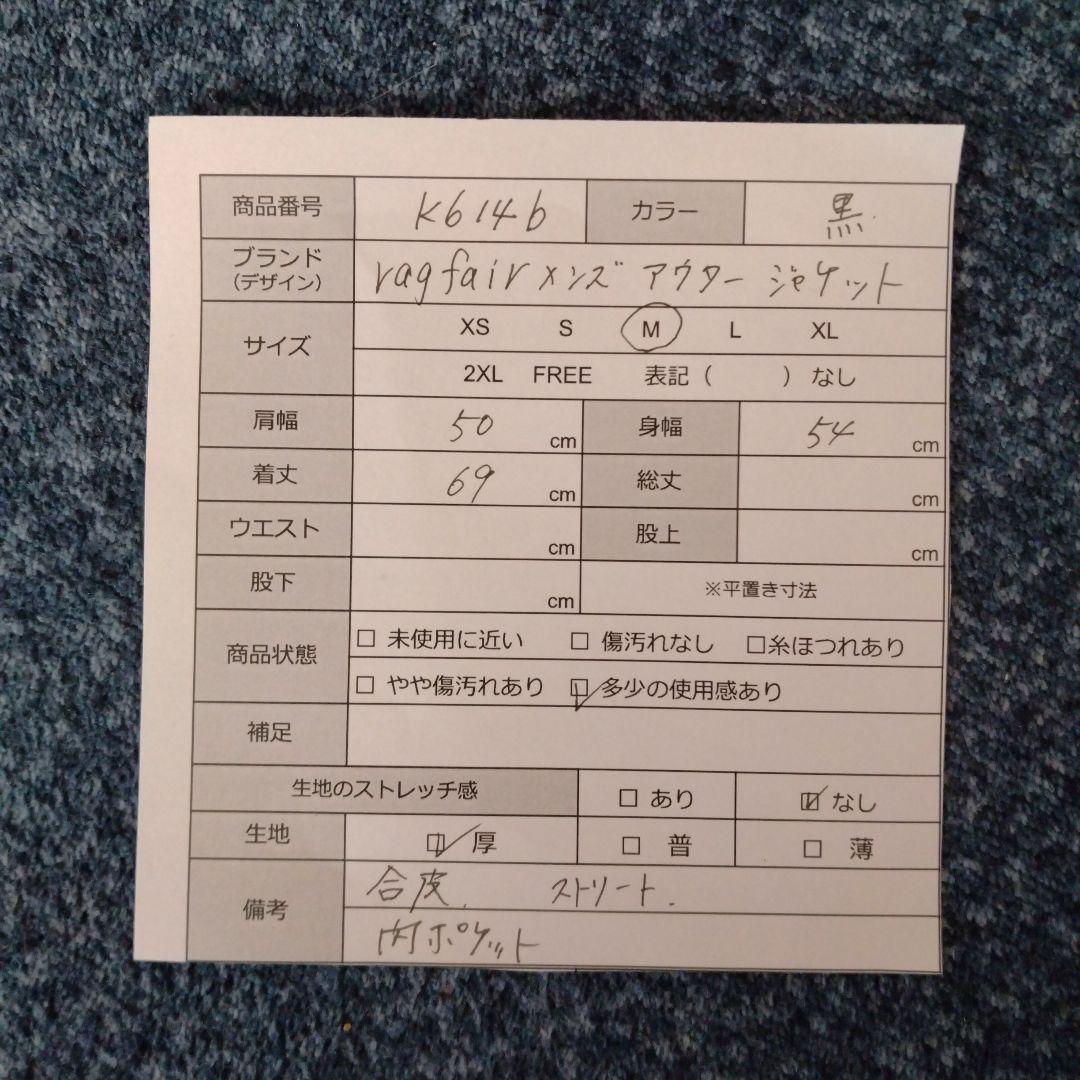 商品番号 K614b カラー 黒.
ブランド
(デザイン) ragfair メンズ アウター ジャケット
サイズ XS S M L XL
2XL FREE 表記( ) なし
肩幅 50 cm 身幅 54 cm
着丈 69 cm 総丈 cm
ウエスト cm 股上 cm
股下 cm ※平置き寸法
商品状態 □ 未使用に近い □ 傷汚れなし □糸ほつれあり
□ やや傷汚れあり ☑ 多少の使用感あり
補足
生地のストレッチ感 □ あり ☑ なし
生地 ☑ 厚 □ 普 □ 薄
備考 合皮. ストリート.
内ポケット